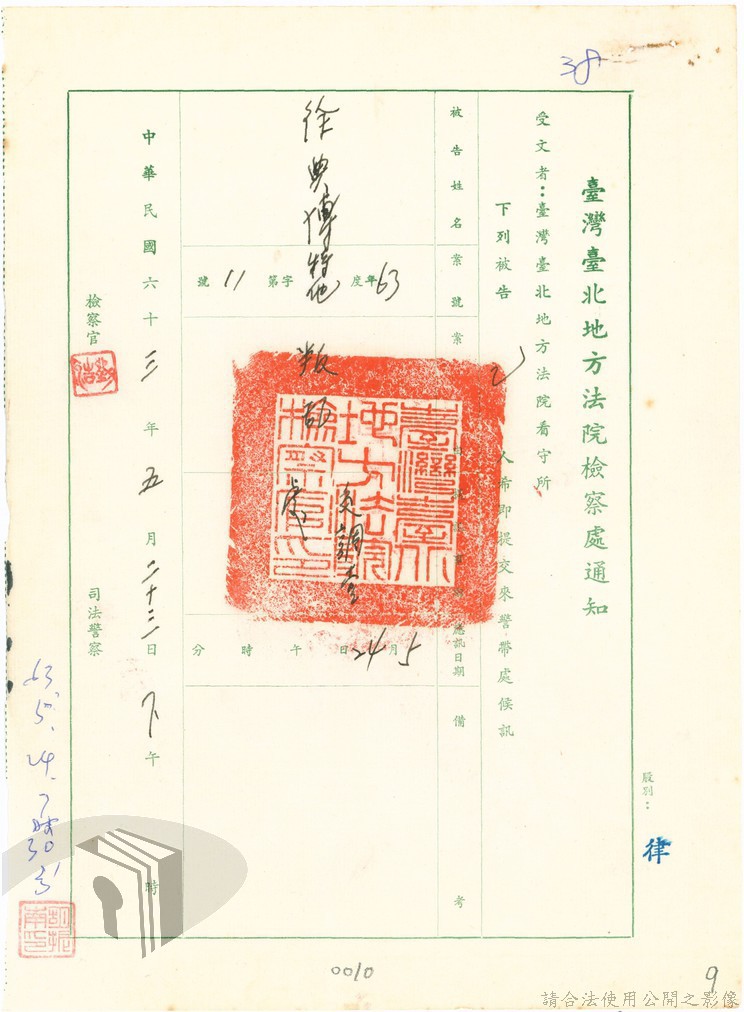 38
臺灣臺北地方法院檢察處通知
受文者：臺灣臺北地方法院看守所
下列被告
人希即提交來警帶處候訊
被告姓名
徐
案號
63年度
字第11號
案
叛
調查
應訊日期
5月24日
午
時
分
備考
中華民國六十三年五月二十三日下午
時
檢察官
司法警察
股別：
律
63.5.24.
臺灣臺北地方法院檢察官印
0010
9
請合法使用公開之影像